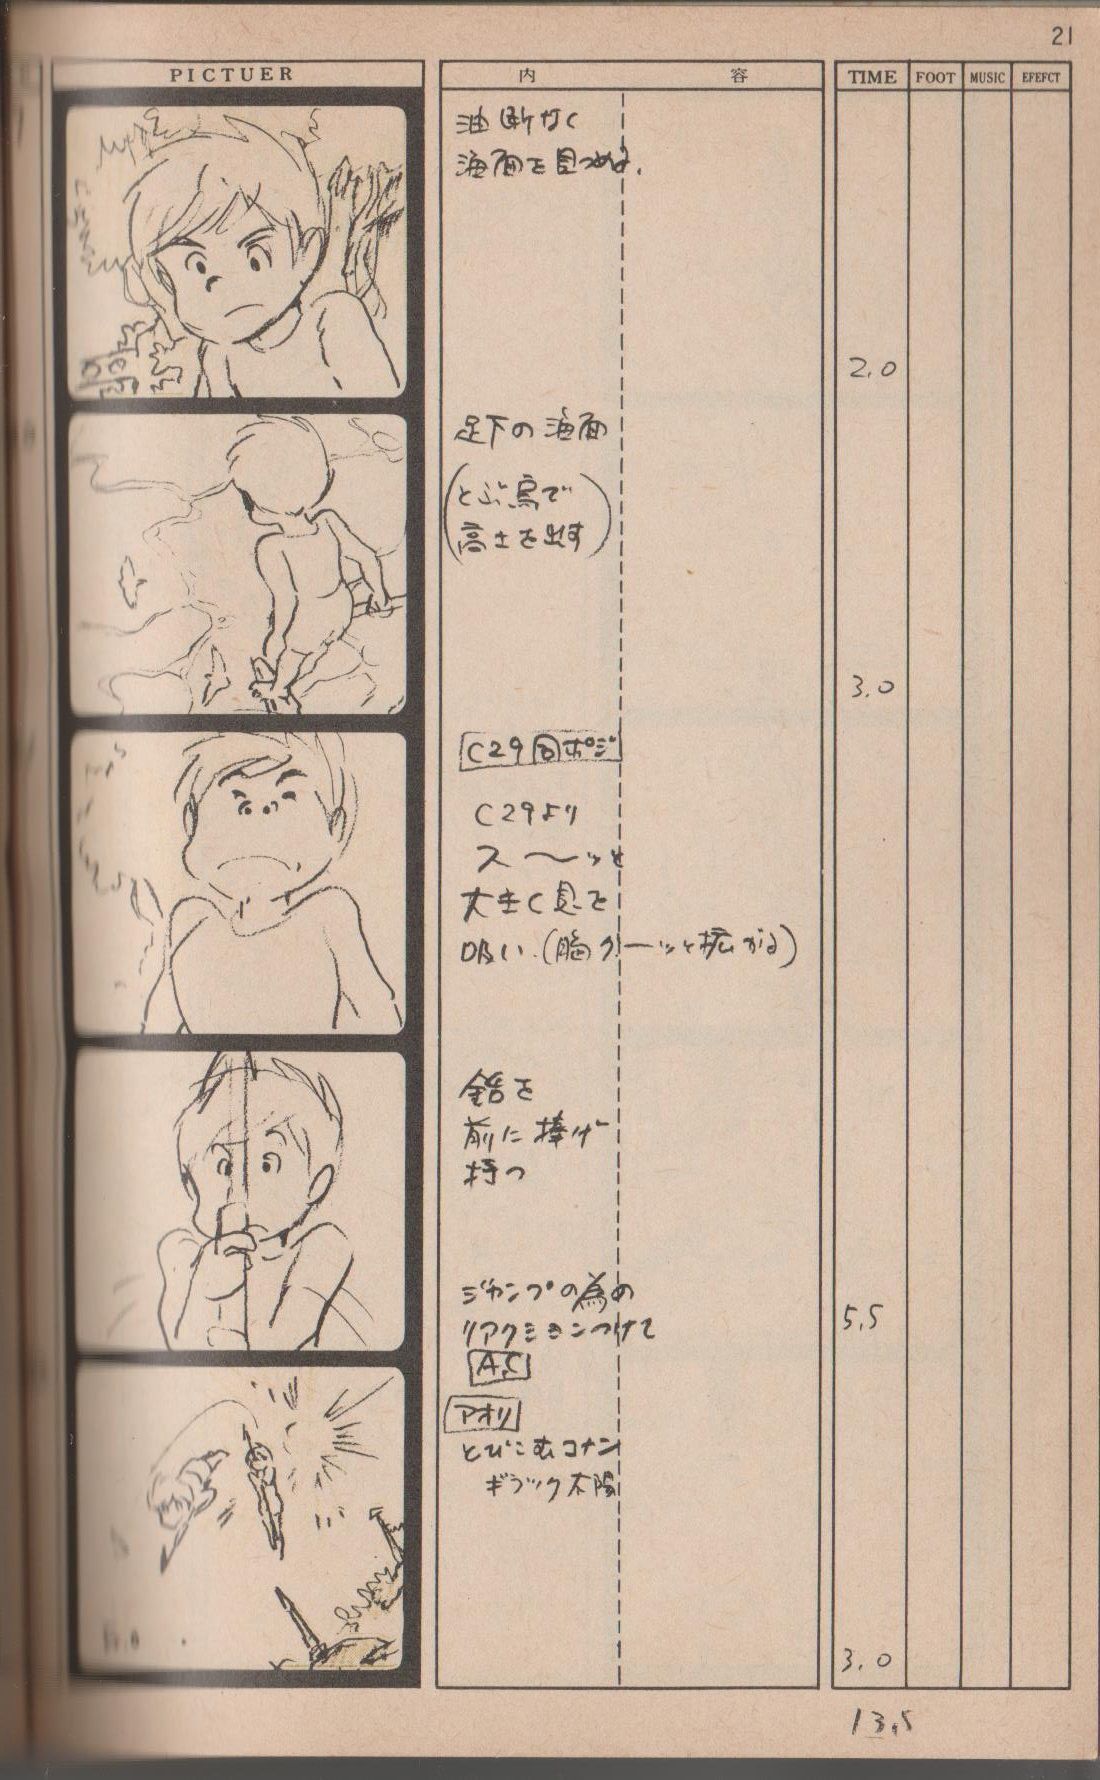 21
PICTUER
内 容
TIME FOOT MUSIC EFEFCT
油断なく
海面を見つめる.
2.0
足下の海面
(とぶ鳥で
高さを出す)
3.0
C29同ポジ
C29より
ス〜ッと
大きく息を
吸い.(胸グーッと拡がる)
銛を
前に捧げ
持つ
ジャンプの為の
リアクションつけて
5.5
A.C
アオリ
とびこむコナン
ギラック太陽
3.0
13.5